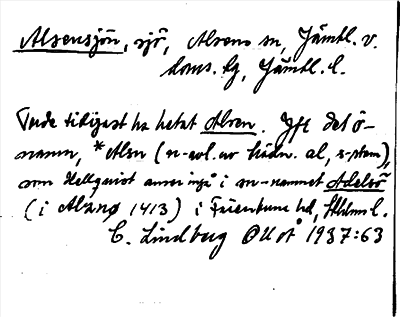 Alsensjön, sjö, Alsens sn, Jämtl. v.
doms. tg, Jämtl. l.
Torde tidigast ha hetat Alsen. Jfr det ö-
namn, *Alsn (n-avl. av trädn. al, s-stam),
som Hellquist anser ingå i sn-namnet Adelsö
(i Alznø 1413) i Färentuna hd, Sthlms l.
C. Lindberg OUoÅ 1937:63